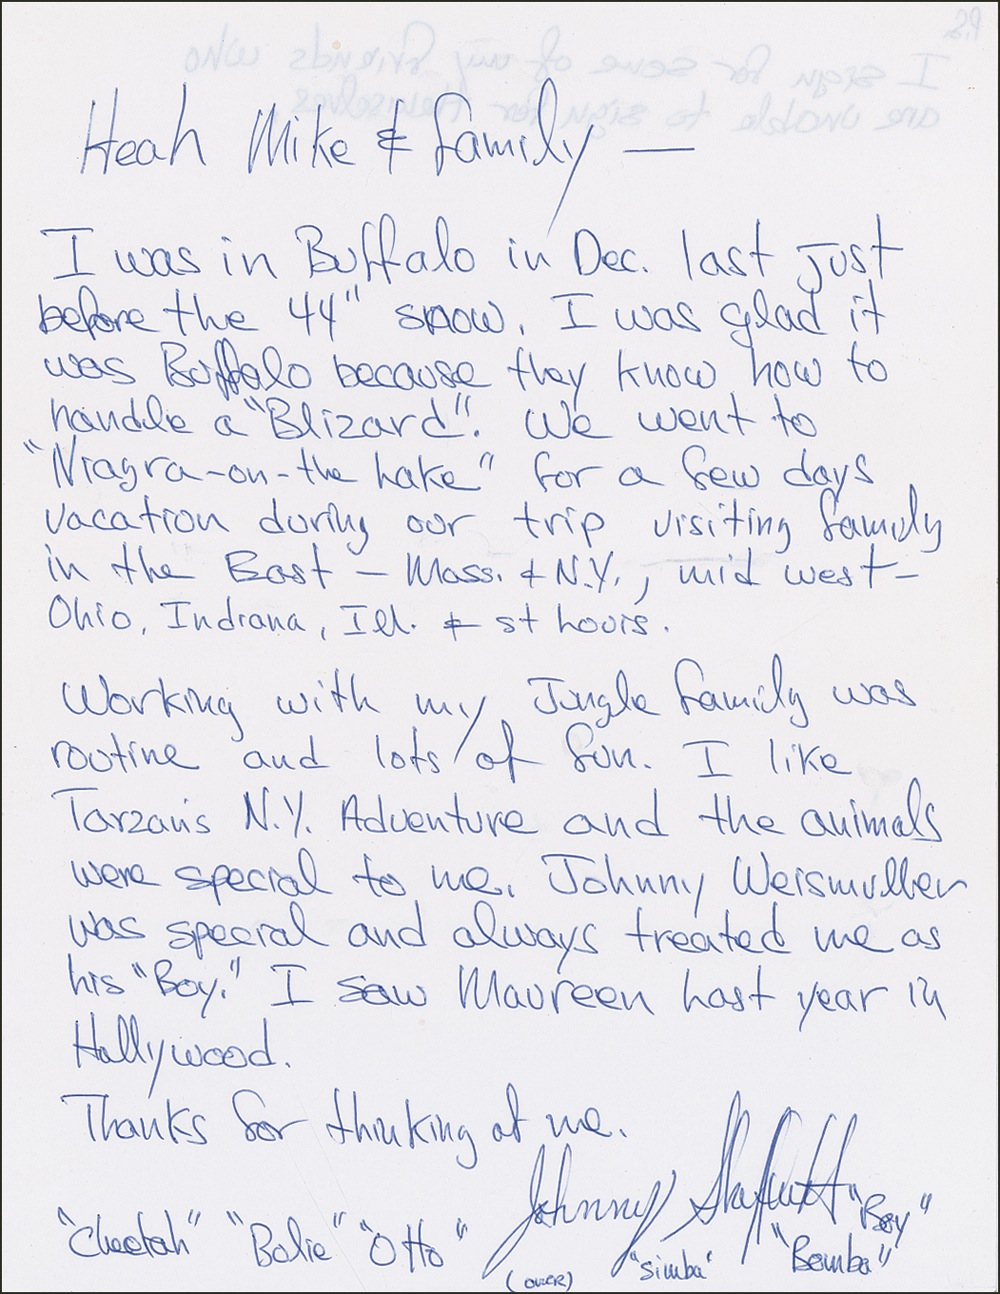 Heah Mike & family —
I was in Buffalo in Dec. last just
before the 44" snow. I was glad it
was Buffalo because they know how to
handle a "Blizard"! We went to
"Niagra-on-the Lake" for a few days
vacation during our trip visiting family
in the East — Mass. & N.Y., mid west —
Ohio, Indiana, Ill. & St Louis.
Working with my Jungle family was
routine and lots of fun. I like
Tarzan's N.Y. Adventure and the animals
were special to me. Johnny Weismuller
was special and always treated me as
his "Boy." I saw Maureen last year in
Hollywood.
Thanks for thinking of me.
Johnny Sheffield "Boy"
"Cheetah" "Bolie" "Otto" (over) "Simba" "Bomba"
P.S.
I sign for some of my friends who
are unable to sign for themselves